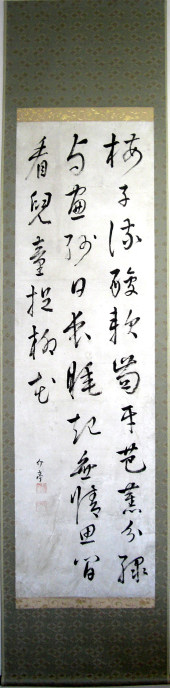 梅子流酸軟歯牙芭蕉分緑
与窓紗日長睡起無情思閒
看児童捉柳花